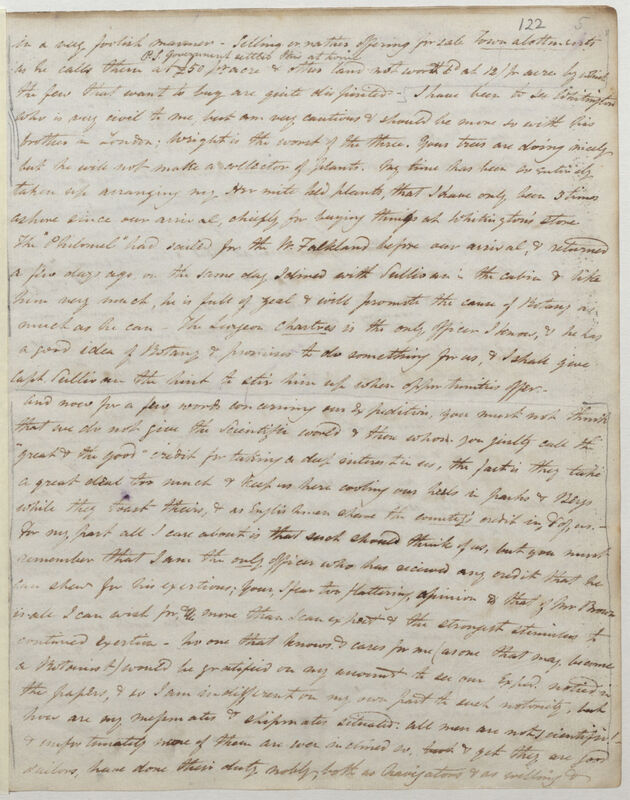 122 5
in a very foolish manner - Selling or rather offering for sale Town alotments
P.S. Government settled this at home
as he calls them at £50 pr acre & other land not worth 6d at 12/ pr acre by which
the few that want to buy are quite disjointed - I have been to see Whitington
who is very civil to me, but am very cautious & should be more so with his
brother in London; Wright is the worst of the three. Your trees are doing nicely
but he will not make a collector of plants. My time has been so entirely
taken up arranging my Hermite bed plants, that I have only been 3 times
ashore since our arrival, chiefly for buying things at Whitington's store
The "Philomel" had sailed for the W. Falkland before our arrival, & returned
a few days ago, on the same day I dined with Sullivan in the cabin & like
him very much, he is full of zeal & will promote the cause of Botany as
much as he can - The Surgeon Chartres is the only officer I know, & he has
a good idea of Botany & promises to do something for us, & I shall give
Capt Sullivan the hint to stir him up when opportunities offer.-
and now for a few words concerning our Expedition, you must not think
that we do not give the Scientific world & those whom you justly call the
"great & the good" credit for taking a deep interest in us, the fact is they take
a great deal too much & keep us here cooling our heels in packs & Bergs
while they toast theirs, & as Englishmen share the country's credit in, & of us.-
For my part all I care about is that such should think of us, but you must
remember that I am the only officer who has recieved any credit that he
can shew for his exertions; Your, I fear too flattering, opinion & that of Mr Brown
is all I can wish for, & more than I can expect & the strongest stimulus to
continued exertion - No one that knows & cares for me (as one that may become
a Botanist) would be gratified on my account to see our Exped. noticed in
the papers, & so I am indifferent on my own part to such notoriety, but
how are my messmates & shipmates situated: all men are not scientific!-
& unfortunately none of them are even inclined so, & yet they are good
sailors, have done their duty nobly, both as Navigators & as willing &